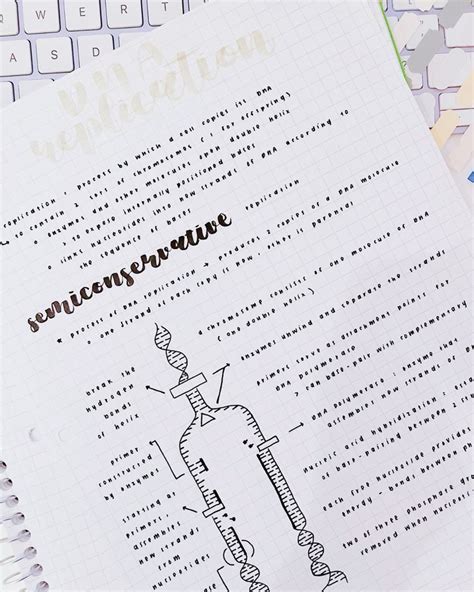 Q W
A S D
Q W
A S
DNA
replication
replication : process by which a cell copies its DNA
↳ to contain 2 sets of chromosomes (1 for offspring)
○ enzymes and other molecules open double helix
> to expose internally positioned bases
○ links nucleotides into new strands of DNA according to
the sequence of bases
semiconservative replication
* process of DNA replication → produces 2 copies of a DNA molecule
○ one strand of each copy is new, other is parental
a chromosome consists of one molecule of DNA
(one double helix)
enzymes unwind and separate the strands
primers serve as attachment points for
DNA polymerase
> can base-pair with complementary
DNA polymerase : enzyme that
assembles new strands of
nucleic acid hybridization :
of base-pairing between
each type nucleotide provides
energy - bonds between
two of three phosphate
removed when
break the
hydrogen
bonds
of helix
primer
constructed
by enzymes
starting at
primers,
assembles
new strands
from
nucleotides